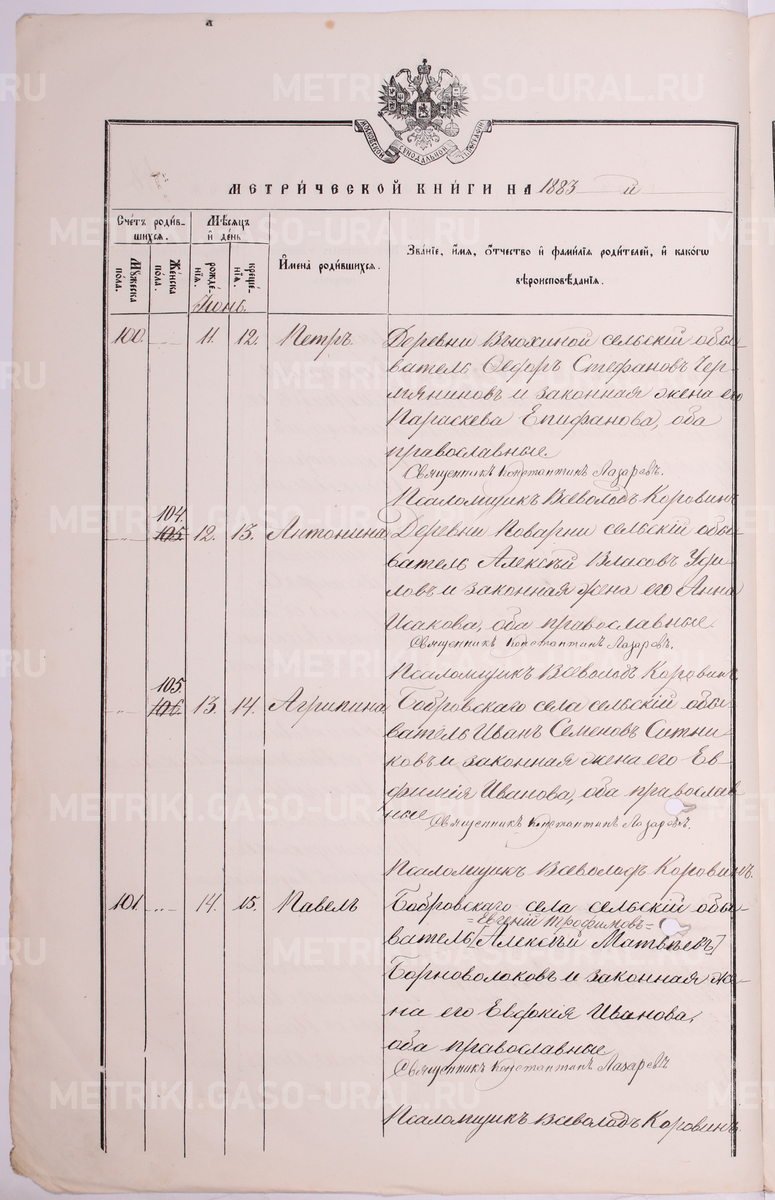 МОСКОВСКОЙ СѴНОДАЛЬНОЙ ТИПОГРАФІИ
МЕТРИ́ЧЕСКОЙ КНИ́ГИ НА 1883 й
Сче́тъ роди́в-
шихся.
Мѣ́сяцъ
и҆ де́нь
И҆мена̀ роди́вшихся.
Зва́ніе, и҆́мя, ѻ҆́тчество и҆ фами́лія роди́телей, и҆ како́гѡ
вѣроисповѣ́данія.
Мꙋ́жеска
по́ла.
Же́нска
по́ла.
рожде́-
нія.
креще́-
нія.
Іюнь.
100. 11. 12. Петръ Деревни Вьюхиной сельскій обы-
ватель Ѳедоръ Стефановъ Чер-
мяниновъ и законная жена его
Параскева Епифанова, оба
православные
Священникъ Константинъ Лазаревъ.
Псаломщикъ Всеволодъ Коровинъ
104.
105. 12. 13. Антонина Деревни Поварни сельскій обы-
ватель Алексѣй Власовъ Уфи-
ловъ и законная жена его Анна
Исакова, оба православные
Священникъ Константинъ Лазаревъ.
Псаломщикъ Всеволодъ Коровинъ
105.
106. 13. 14. Агрипина Бобровскаго села сельскій обы-
ватель Иванъ Семеновъ Ситни-
ковъ и законная жена его Ев-
фимія Иванова, оба православ-
ные
Священникъ Константинъ Лазаревъ.
Псаломщикъ Всеволодъ Коровинъ.
101. 14. 15. Павелъ Бобровскаго села сельскій обы-
=Евгеній Трофимовъ=
ватель [Алексѣй Матвѣевъ]
Борноволоковъ и законная же-
на его Евдокія Иванова,
оба православные
Священникъ Константинъ Лазаревъ
Псаломщикъ Всеволодъ Коровинъ.
METRIKI.GASO-URAL.RU